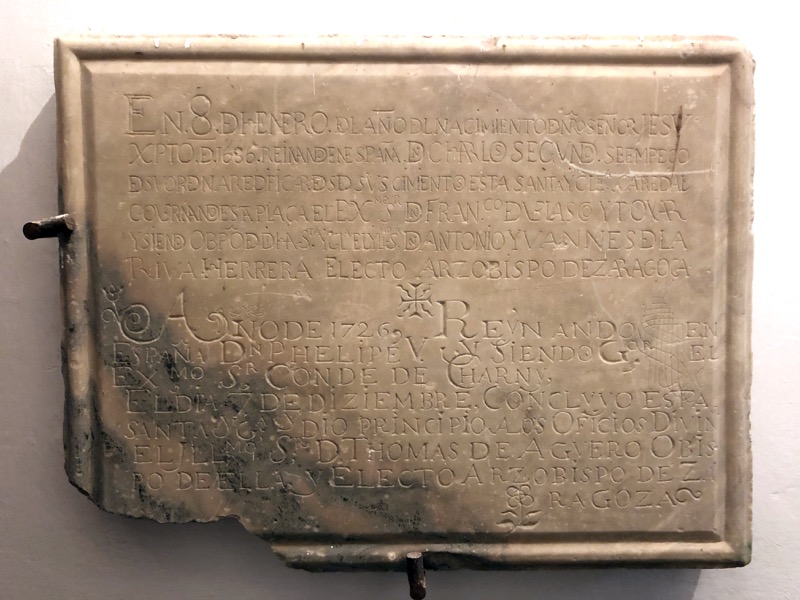 EN 8 DHENERO. DL AÑO DL NACIMIENTO D NO SEÑOR JESV
XPTO. D 1686. REINAND EN ESPAÑA. DN CHARLOSEGVND. SE EMPEÇO
D SV ORDN A REDIFICAR DSD SVS CIMENTO ESTA SANTA YGLE
GOVERNAND ESTA PLAÇA EL EXCMO SR DN FRAN.CO D VELASCO Y TOVAR
Y SIEND OBPO D DHA STA YGL EL YLL SR DN ANTONIO YVANNES D LA
RIVA HERRERA ELECTO ARZOBISPO DE ZARAGOÇA
AÑO DE 1726, REYNANDO EN
ESPAÑA DN PHELIPE V. YN SIENDO GOR EL
EXMO SR CONDE DE CHARNY,
EL DIA 7 DE DIZIEMBRE, CONCLVVO ESTA
SANTA YGA Y DIO PRINCIPIO A LOS OFICIOS DIVIN
EL JLLMO SR D THOMAS DE AGVERO OBIS
PO DE ELLA Y ELECTO ARZOBISPO DE ZA
RAGOZA